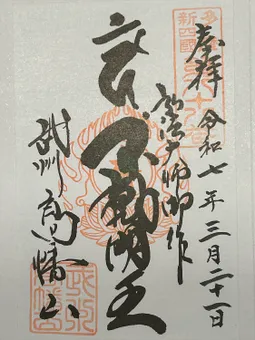 奉拝 令和七年三月二十一日
弘法大師御作
不動明王
武州 高幡山
新四國